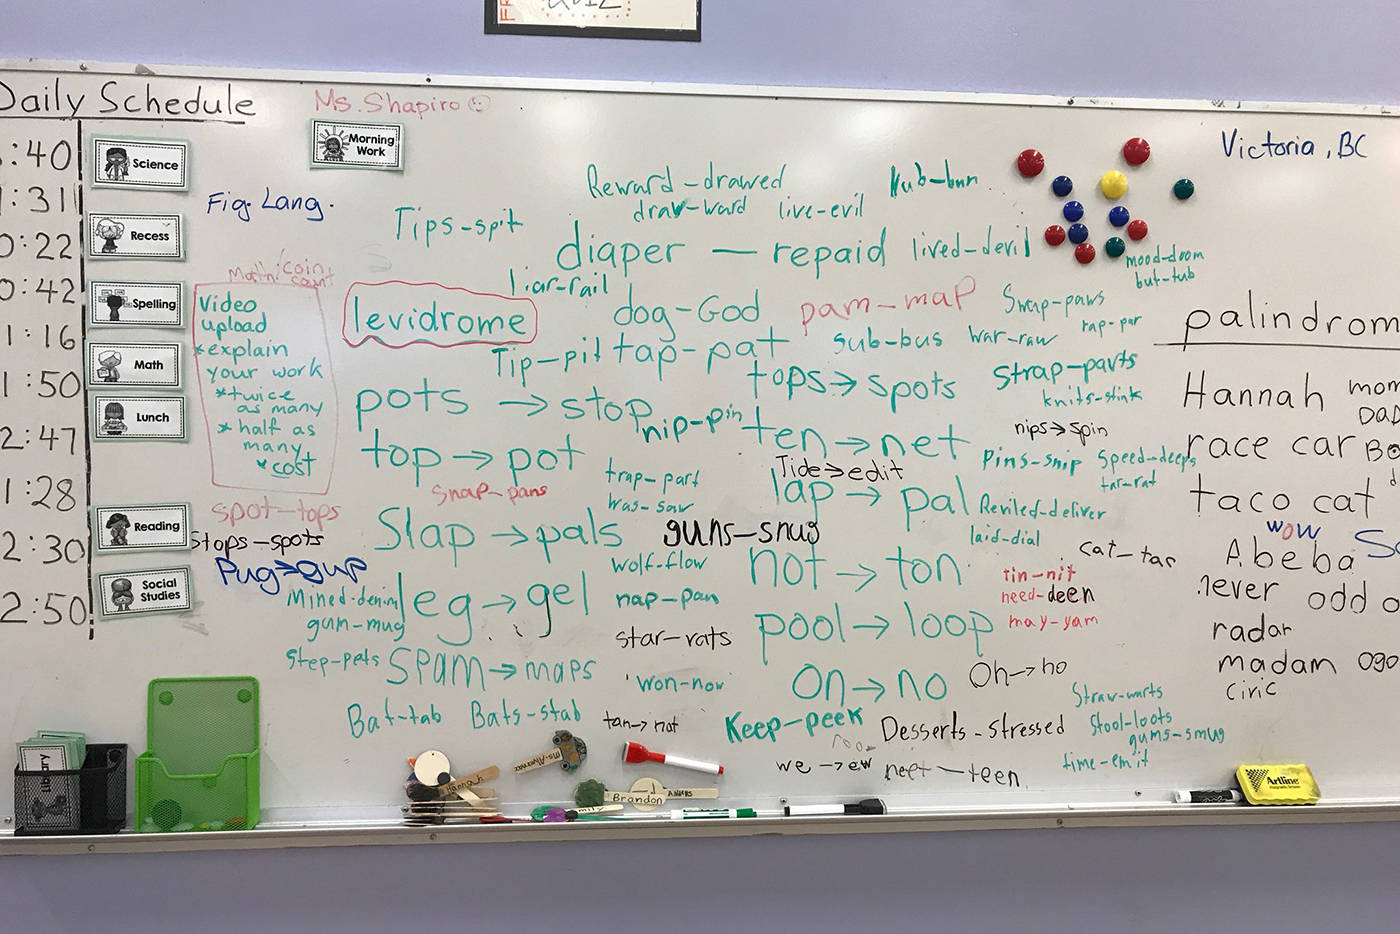 QUIZ
Daily Schedule
Ms. Shapiro
:40
Science
Morning Work
Victoria, BC
:31
Fig. Lang.
Reward-drawed
draw-ward
live-evil
Nub-bun
Tips-spit
0:22
Recess
diaper — repaid
lived-devil
mood-doom
but-tub
Math: coin count
liar-rail
0:42
Spelling
levidrome
dog-God
pam-map
Swap-paws
rap-par
palindrom
1:16
Video
upload
*explain
your work
*twice
as many
*half as
many
*cost
Tip-pit
tap-pat
sub-bus
war-raw
Math
tops→spots
strap-parts
knits-stink
1:50
pots → stop
nip-pin
Hannah
mom
DAD
Lunch
ten→net
nips→spin
2:47
top→pot
Tide→edit
pins-snip
Speed-deeps
tar-rat
race car
snap-pans
trap-part
was-saw
lap → pal
Reviled-deliver
taco cat
1:28
spot-tops
Reading
stops-spots
Slap →pals
guns-snug
laid-dial
wow
2:30
Pug→gup
wolf-flow
not → ton
cat-tac
Abeba
Social Studies
Mined-denim
gum-mug
leg→gel
nap-pan
tin-nit
need-deen
may-yam
never odd o
2:50
star-rats
pool→loop
radar
step-pets
spam→maps
won-now
on→no
Oh→ho
madam
civic
Bat-tab
Bats-stab
tan→nat
Keep-peek
Desserts-stressed
Straw-warts
Stool-loots
gums-smug
time-emit
we→ew
neet—teen
Library
Hannah
Ms. Alvarez
Brandon
Artline